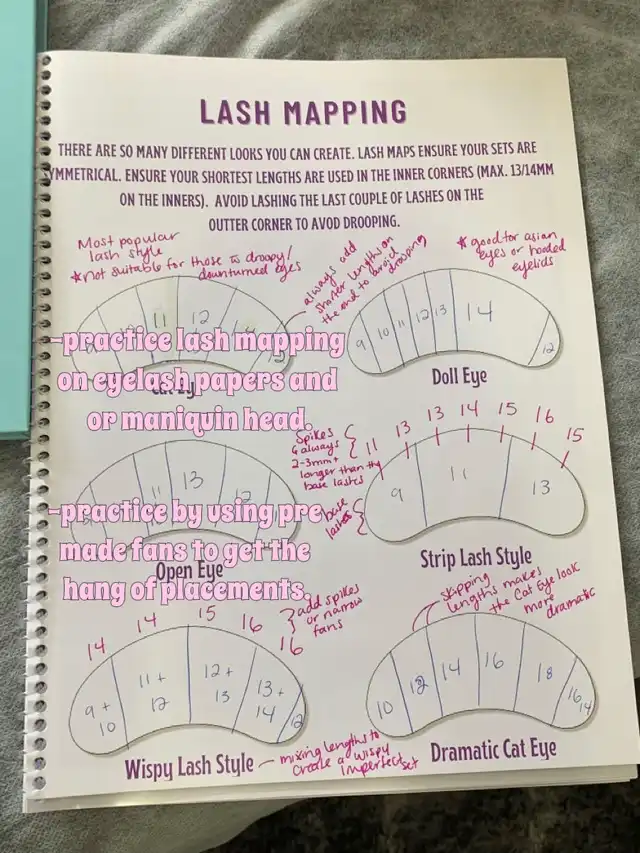 LASH MAPPING
THERE ARE SO MANY DIFFERENT LOOKS YOU CAN CREATE. LASH MAPS ENSURE YOUR SETS ARE
SYMMETRICAL. ENSURE YOUR SHORTEST LENGTHS ARE USED IN THE INNER CORNERS (MAX. 13/14MM
ON THE INNERS). AVOID LASHING THE LAST COUPLE OF LASHES ON THE
OUTTER CORNER TO AVOD DROOPING.
Most popular
lash style
*not suitable for those w droopy/
downturned eyes
always add
shorter lengths on
the end to avoid
drooping
*good for asian
eyes or hooded
eyelids
11 12
9 10 11 12 13 14 12
-practice lash mapping
on eyelash papers and
or maniquin head.
Cat Eye
Doll Eye
11 13 12
Spikes
always
2-3mm+
longer than the
base lashes
11 13 13 14 15 16 15
base
lashes
9 11 13
-practice by using pre
made fans to get the
hang of placements.
Open Eye
Strip Lash Style
14 14 15 16 16
add spikes
or narrow
fans
skipping
lengths makes
the Cat Eye look
more
dramatic
9+
10
11+
12
12+
13
13+
14
12
10 12 14 16 18 16 14
Wispy Lash Style
mixing lengths to
create a wispy
imperfect set
Dramatic Cat Eye